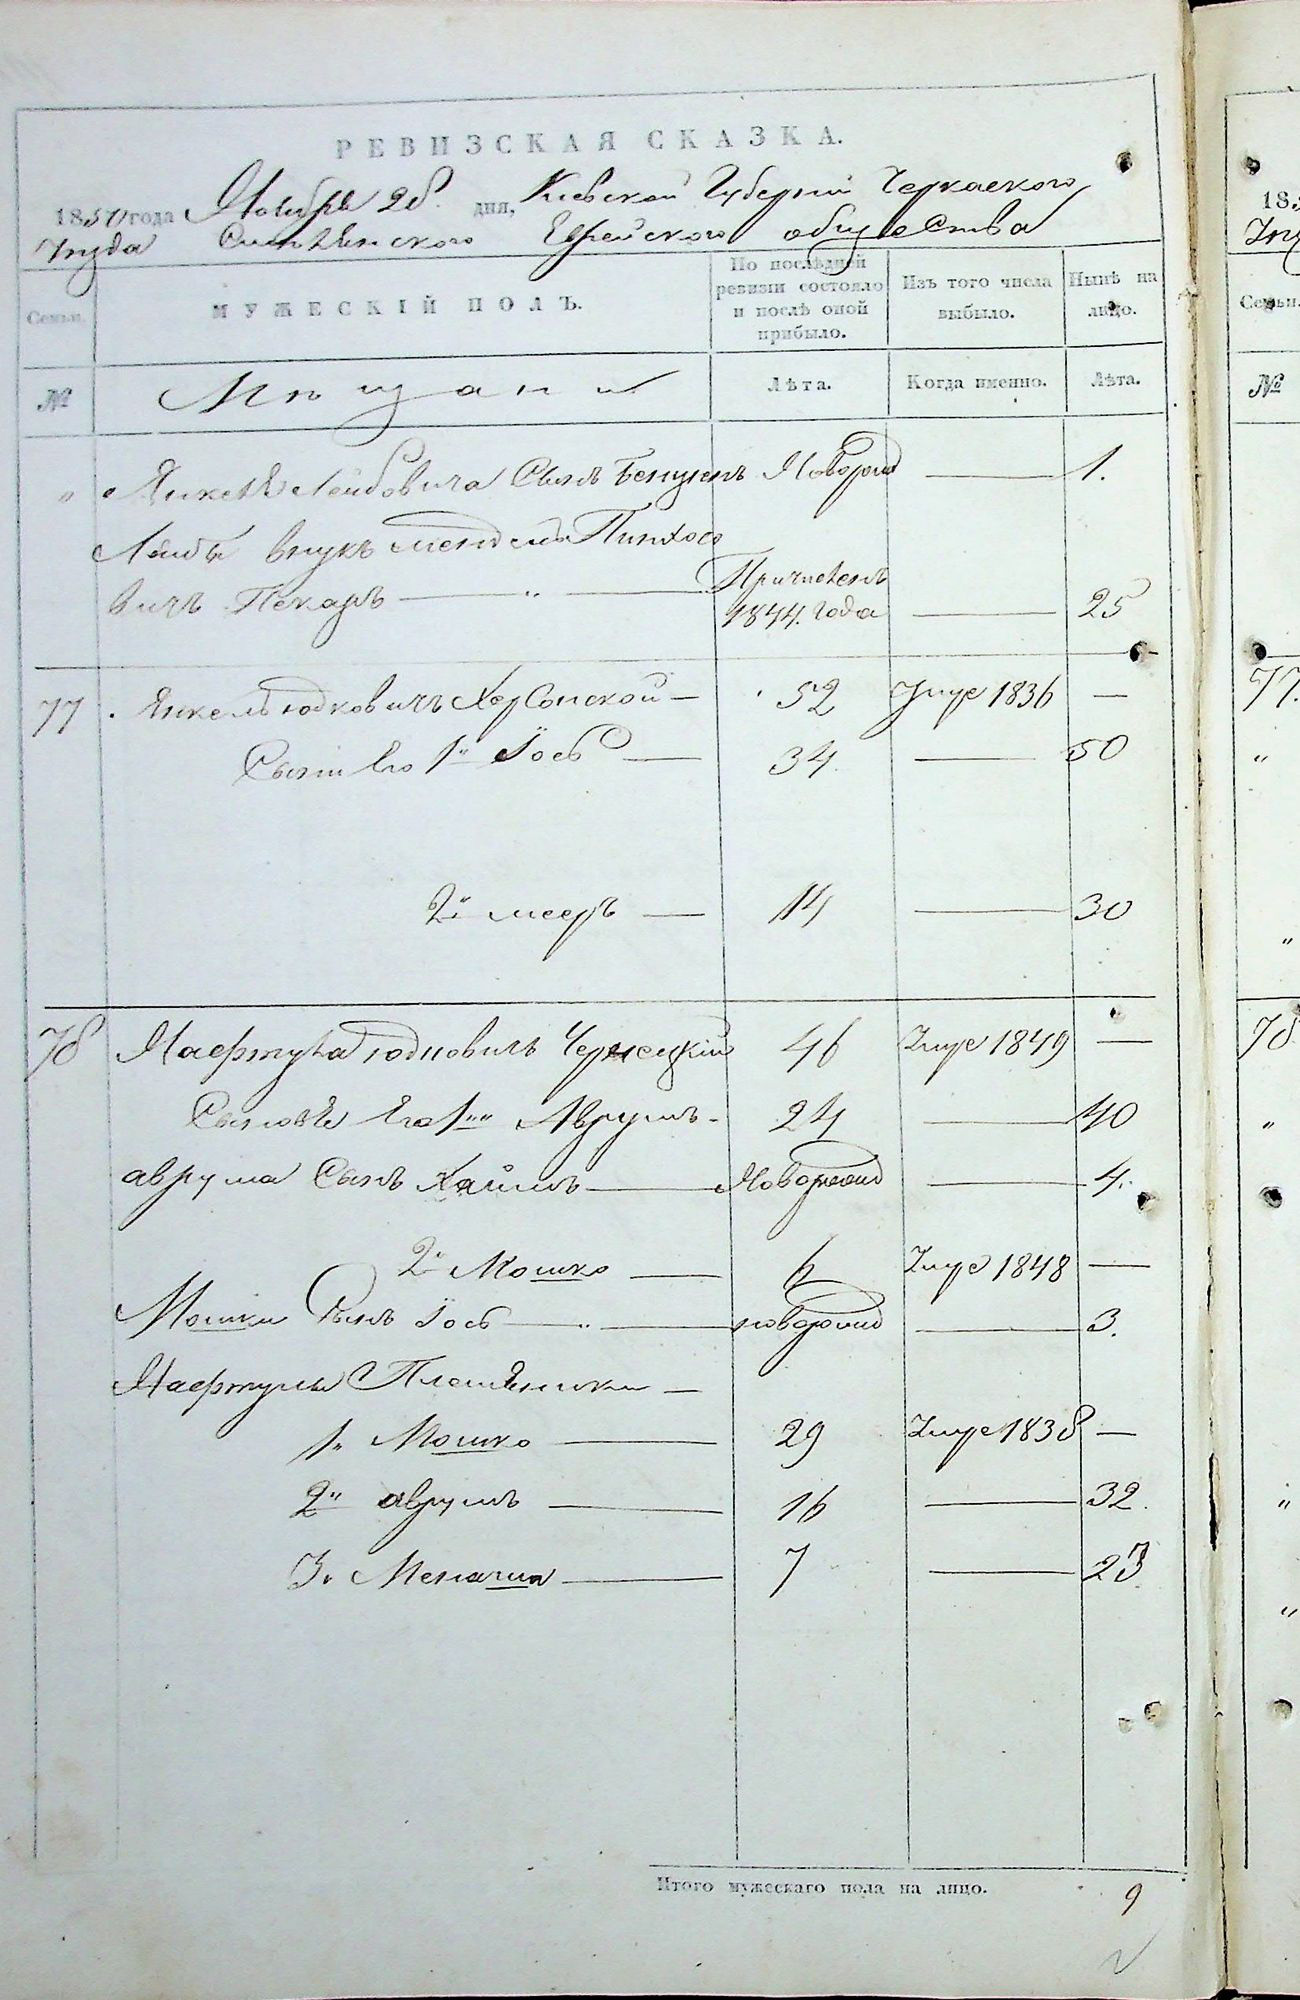 РЕВИЗСКАЯ СКАЗКА.
1850 года Ноября 28. дня, Киевской Губерніи Черкаского
уезда Смилянского Еврейского общества
Семьи. МУЖЕСКІЙ ПОЛЪ. По послѣдней ревизіи состояло и послѣ оной прибыло. Изъ того числа выбыло. Нынѣ на лицо.
№ Мѣщани Лѣта. Когда именно. Лѣта.
" Янкеля Лейбовича Сынъ Новорож — 1.
Лейба внукъ менделя Пинхосо
вичъ Пекарь — " — Причисленъ 1844. года — 25
77 Янкель Юдковичъ Херсонской — 52 Умре 1836 —
Сыни Его 1й Іось — 34 — 50
2й мееръ — 14 — 30
78 Нафтула Юдковичъ Чернецкій 46 Умре 1849 —
Сыновья Его 1й Аврумъ - 24 — 40
аврума Сынъ Хаимъ — Новорожд — 4.
2й Мошко — 6 Умре 1848 —
Мошки Сынъ Іось — " — новорожд — 3.
Нафтулы Племянники —
1й Мошко — 29 Умре 1838 —
2й аврумъ — 16 — 32.
3й Менаша — 7 — 23
Итого мужескаго пола на лицо. 9
18
Семьи.
№
77.
"
"
78
"
"
"